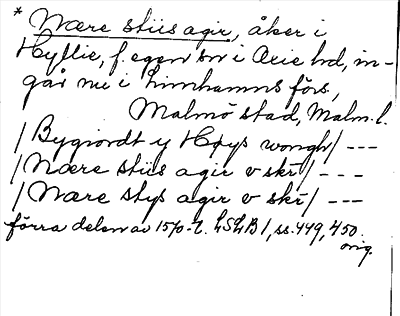 * Nære stiis agir, åker i
Hyllie, f. egen sn i Oxie hd, in-
går nu i Limhamns förs.,
Malmö stad, Malm. l.
/Bygiordt y Høys wongh/ ---
/Nære stiis agir v skr/ ---
/Nære stys agir v skr/ ---
förra delen av 1570-t. LSLB 1, ss. 449, 450.
orig.